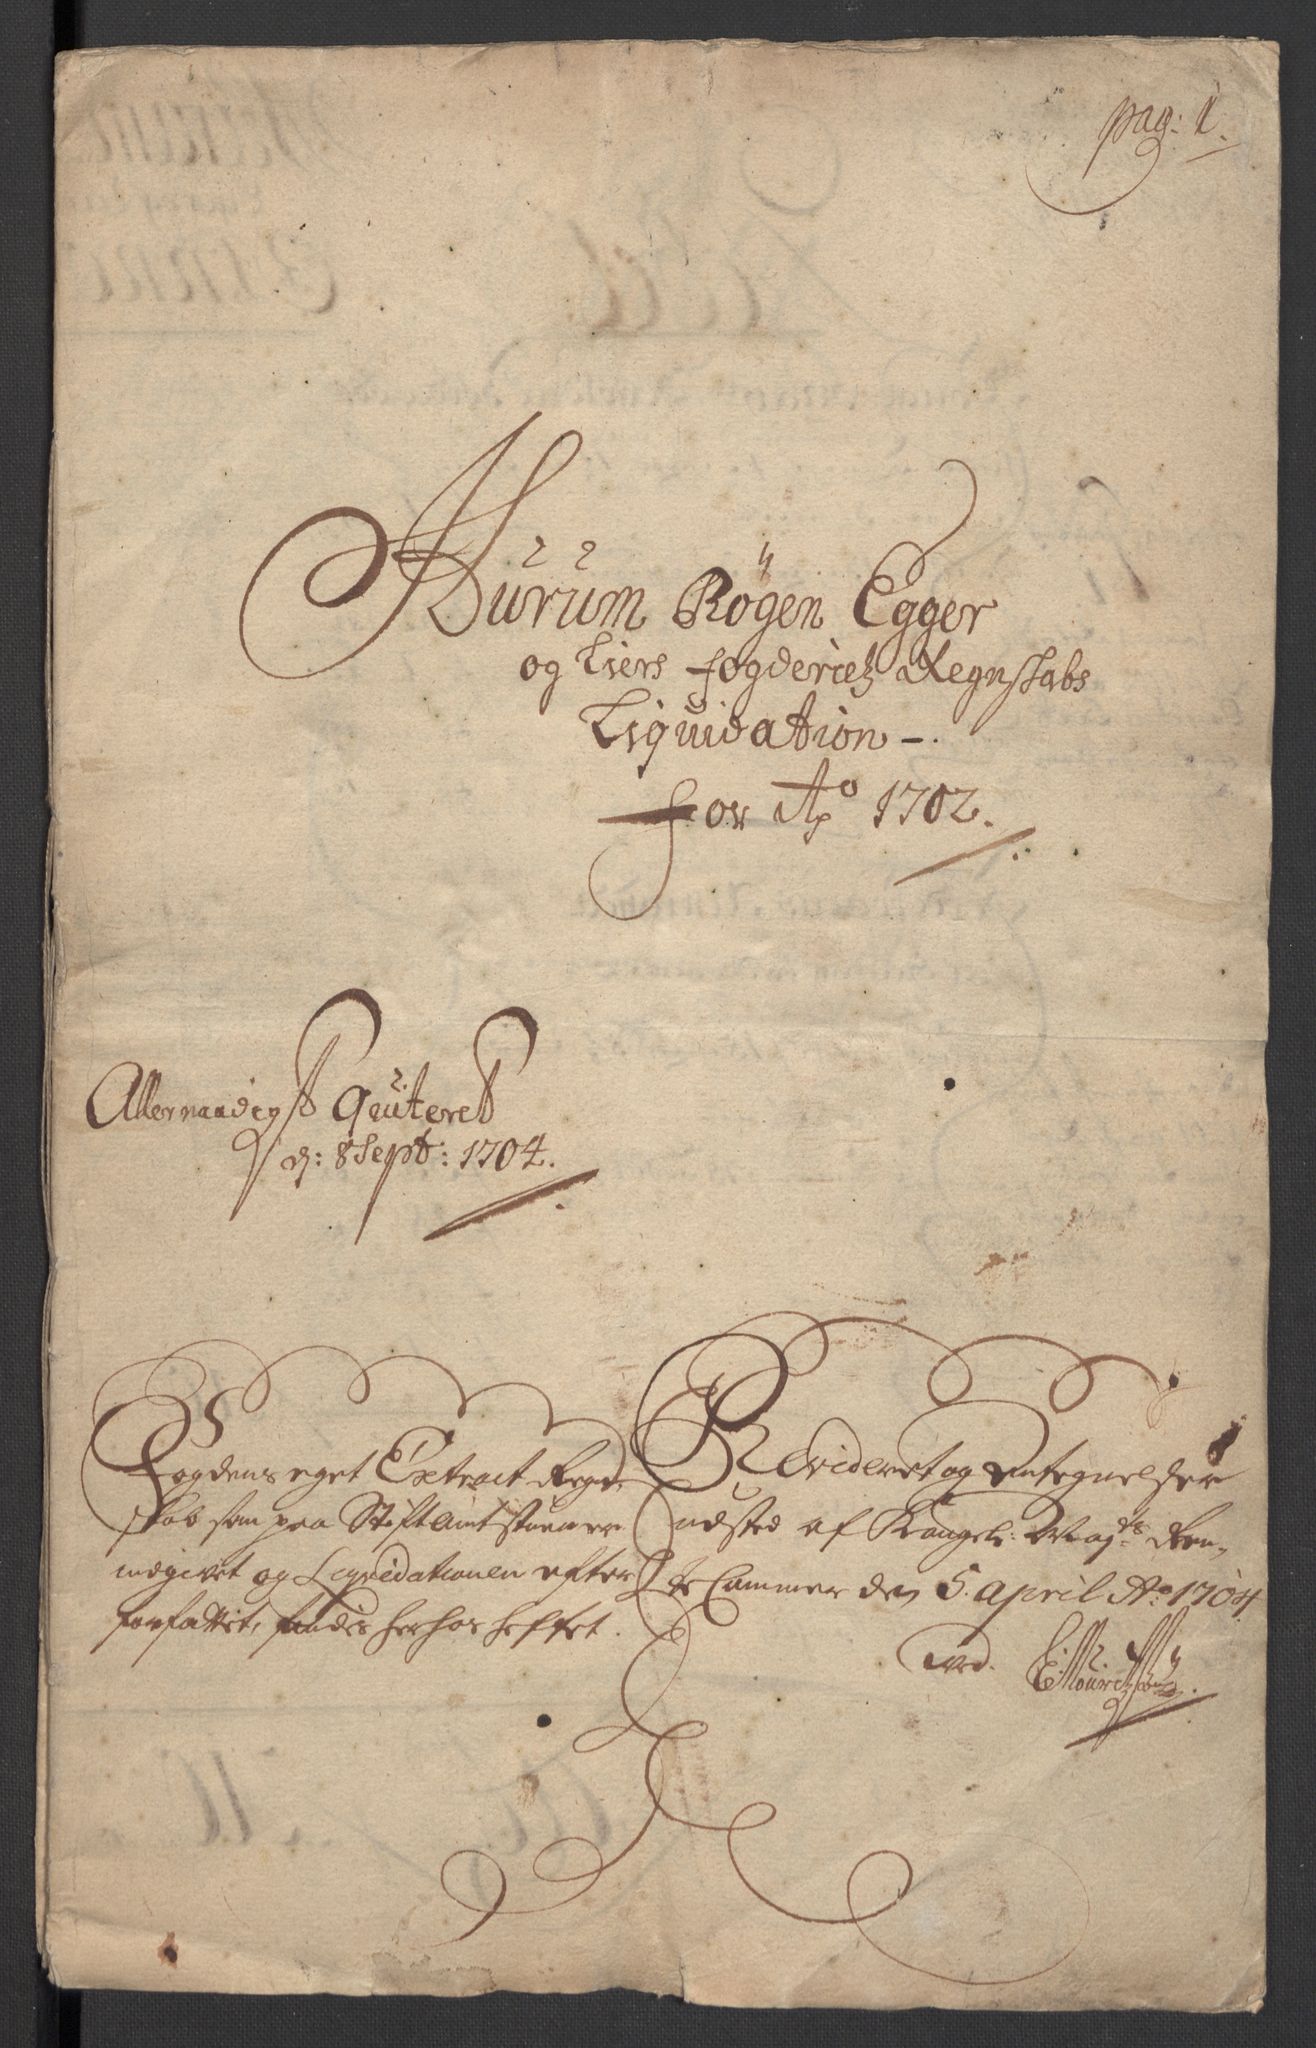 pag: 1.
Hürüm Rögen Egger
og Liers fogderietz Regnskabs
Liquidation –.
for Ao 1702.
Allernaadigst Quiteret
d: 8 Sept: 1704.
Fogdens eget Extract Regn,
skab som paa Stiftamtstuen er
indgivet og Liqvidationen efter
forfattet, findis herhos heftet.
Revideret og Antegnelser
udsted af Kongel: Mayts Ren,
te Cammer den 5. April Ao 1704
ved.